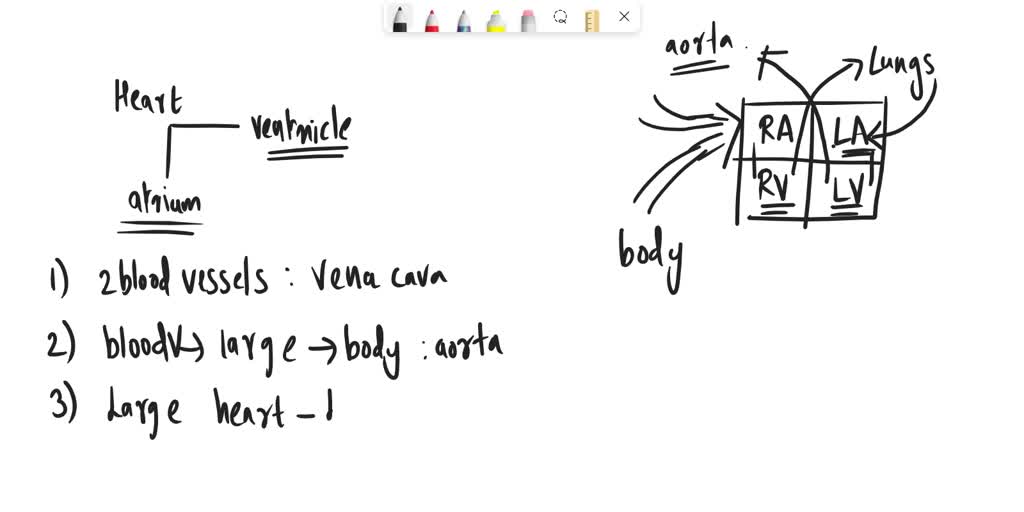 aorta.
Lungs
Heart
ventricle
RA LA
atrium
RV LV
body
1) 2 blood vessels : vena cava
2) bloodV → large → body : aorta
3) Large heart - l